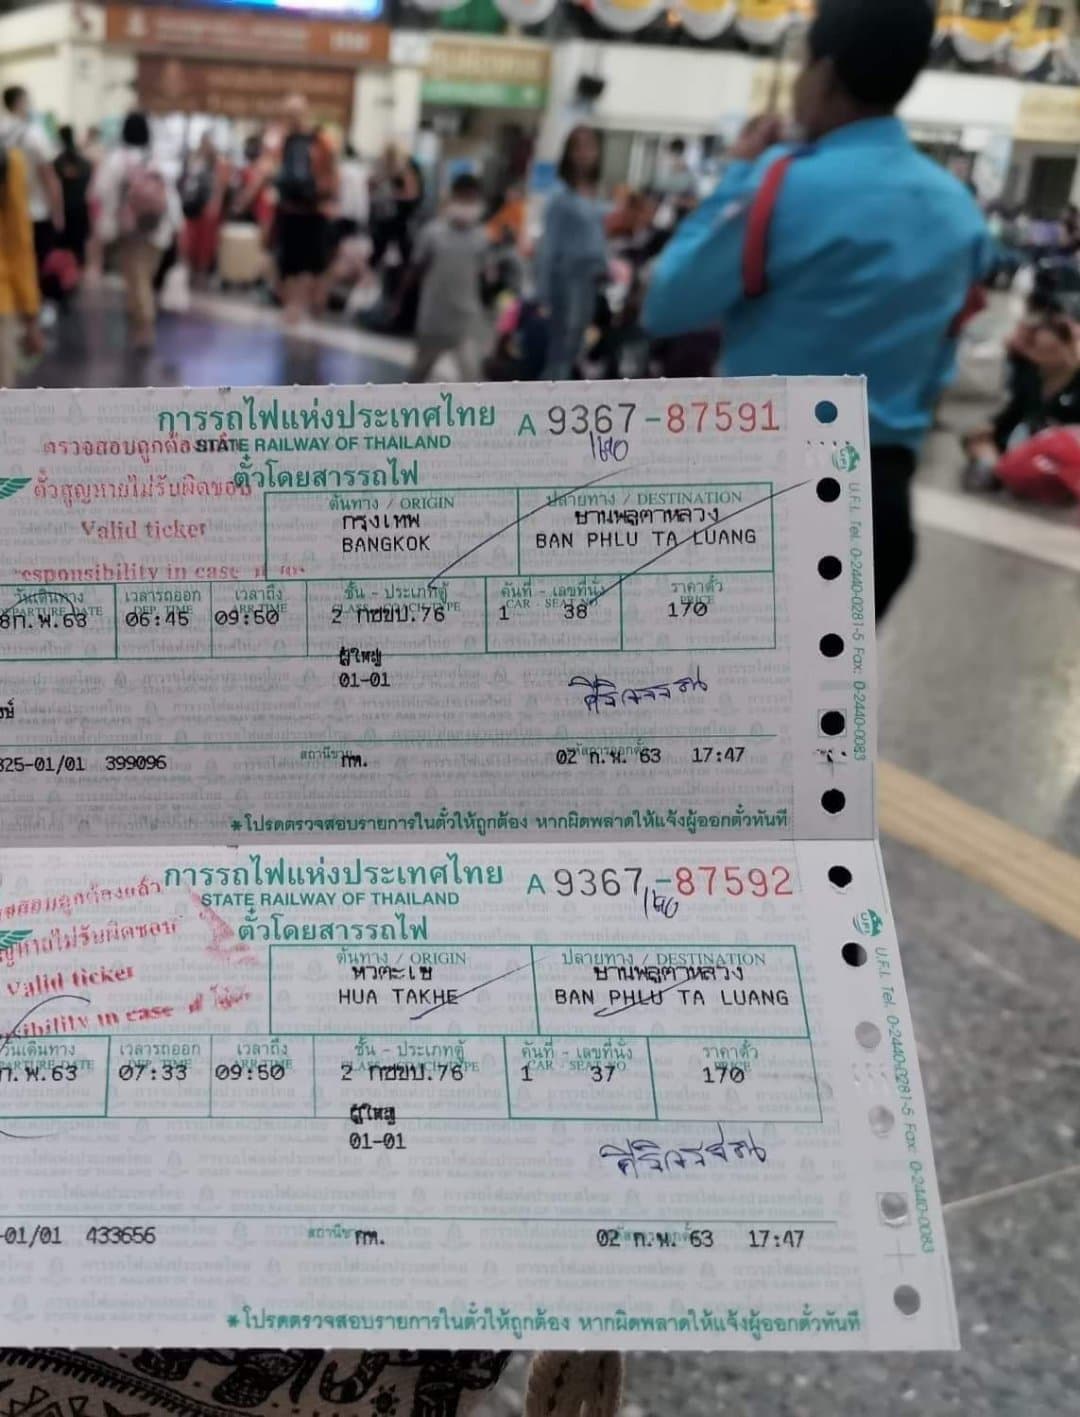 การรถไฟแห่งประเทศไทย A 9367-87591
STATE RAILWAY OF THAILAND
ตั๋วสูญหายไม่รับผิดชอบ
ตั๋วโดยสารรถไฟ
Valid ticker
responsibility in case
ต้นทาง / ORIGIN ปลายทาง / DESTINATION
กรุงเทพ บ้านพลูตาหลวง
BANGKOK BAN PHLU TA LUANG
วันเดินทาง เวลารถออก เวลาถึง ชั้น - ประเภทตู้ คันที่ - เลขที่นั่ง ราคาตั๋ว
DEP. TIME ARR. TIME CAR - SEAT NO. PRICE
8ก.พ.63 06:45 09:50 2 กซขป.76 1 38 170
ผู้ใหญ่
01-01
325-01/01 399096 กท. 02 ก.พ. 63 17:47
*โปรดตรวจสอบรายการในตั๋วให้ถูกต้อง หากผิดพลาดให้แจ้งผู้ออกตั๋วทันที
U.F.I. Tel. 0-2440-0281-5 Fax: 0-2440-0083
การรถไฟแห่งประเทศไทย A 9367-87592
STATE RAILWAY OF THAILAND
ตั๋วโดยสารรถไฟ
Valid ticker
in case
ต้นทาง / ORIGIN ปลายทาง / DESTINATION
หัวตะเข้ บ้านพลูตาหลวง
HUA TAKHE BAN PHLU TA LUANG
วันเดินทาง เวลารถออก เวลาถึง ชั้น - ประเภทตู้ คันที่ - เลขที่นั่ง ราคาตั๋ว
DEP. TIME ARR. TIME CAR - SEAT NO PRICE
ก.พ.63 07:33 09:50 2 กซขป.76 1 37 170
ผู้ใหญ่
01-01
-01/01 433656 กท. 02 ก.พ. 63 17:47
*โปรดตรวจสอบรายการในตั๋วให้ถูกต้อง หากผิดพลาดให้แจ้งผู้ออกตั๋วทันที
U.F.I. Tel. 0-2440-0281-5 Fax: 0-2440-0083